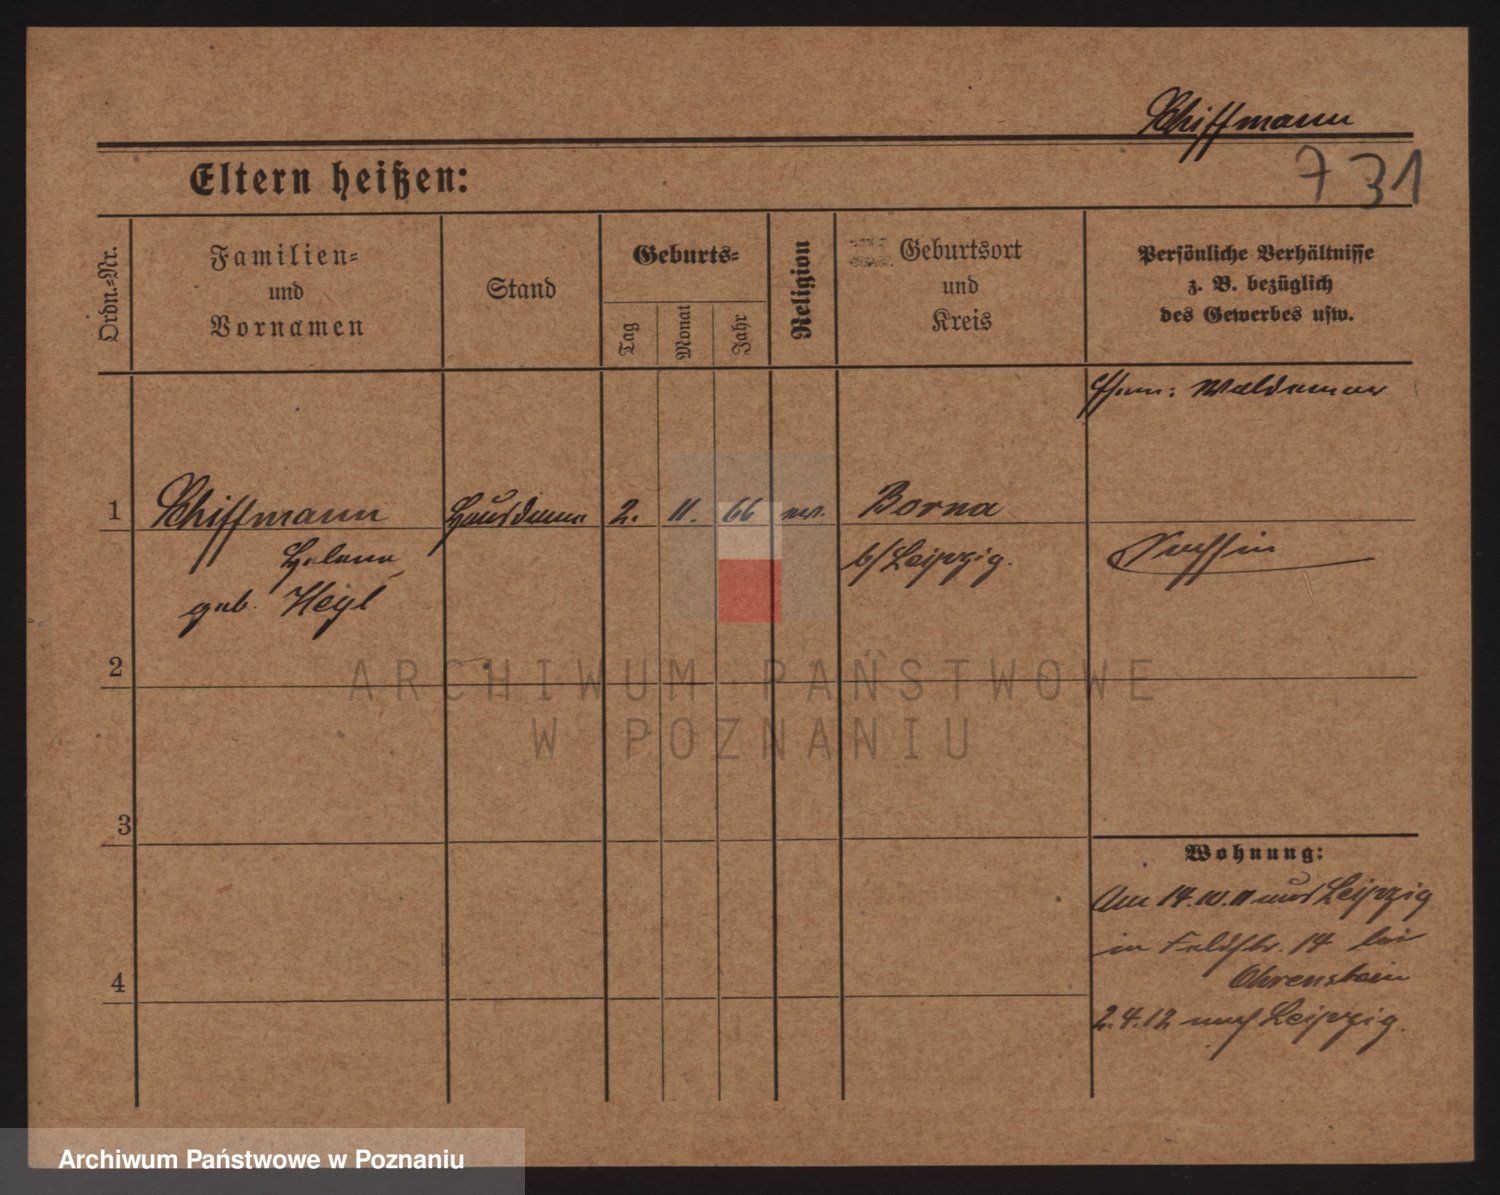 Schiffmann
731
Eltern heißen:
Ordn.-Nr.
Familien-
und
Vornamen
Stand
Geburts-
Tag
Monat
Jahr
Religion
Geburtsort
und
Kreis
Persönliche Verhältnisse
z. B. bezüglich
des Gewerbes usw.
Ehem: Waldemar
1 Schiffmann Hausdame 2. 11. 66 ev. Borna
Helene b/Leipzig.
geb. Heyl
2
3
4
Wohnung:
Am 14.10.11 aus Leipzig
in Feldstr. 14 bei
Ohrenstein
2.4.12 nach Leipzig.
ARCHIWUM PAŃSTWOWE
W POZNANIU
Archiwum Państwowe w Poznaniu